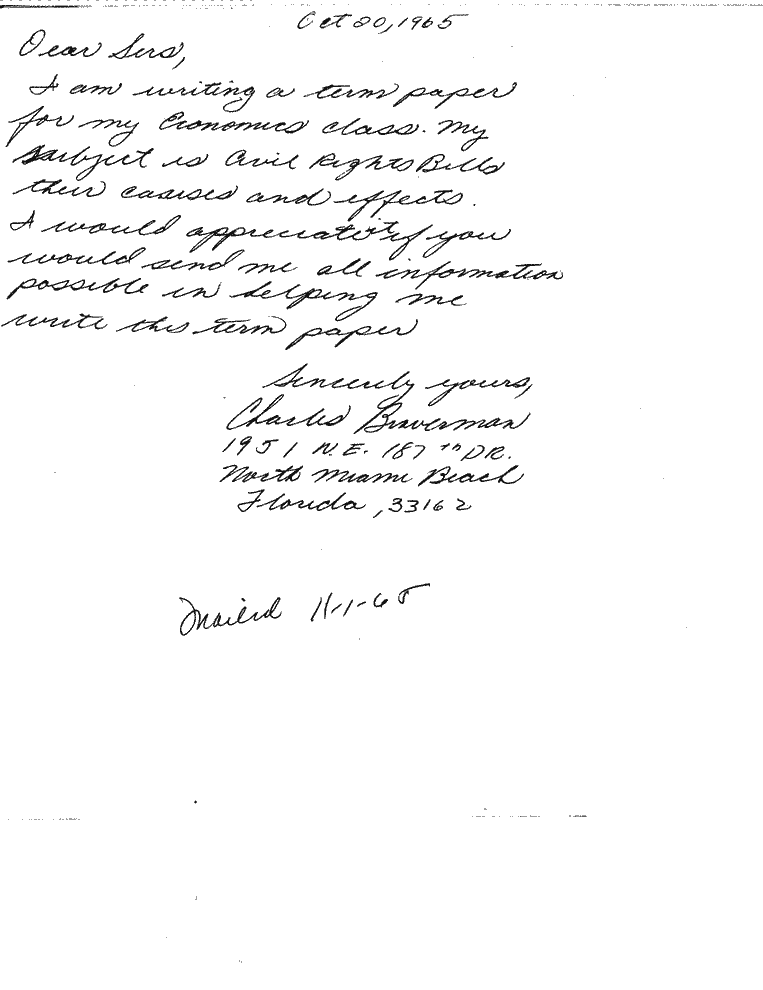 Oct 20, 1965
Dear Sirs,
I am writing a term paper
for my Economics class. My
subject is Civil Rights Bills
their causes and effects.
I would appreciate it if you
would send me all information
possible in helping me
write this term paper
Sincerely yours,
Charles Braverman
1951 N.E. 187th DR.
North Miami Beach
Florida, 33162
Mailed 11-1-65